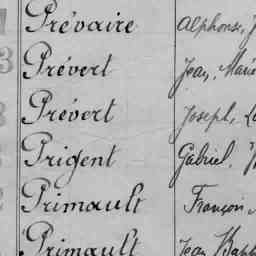 Prévaire Alphonse, J
Prévert Jean, Marie
Prévert Joseph, L
Prigent Gabriel,
Primault François
Primault Jean Bapt